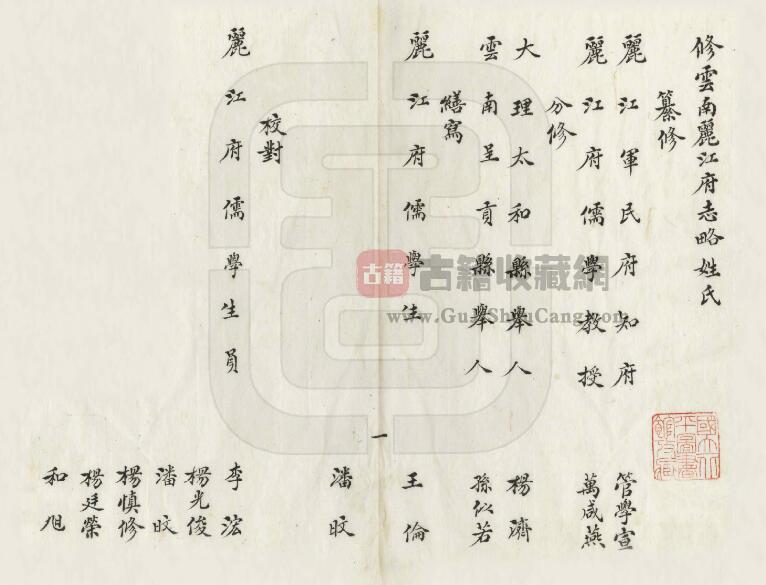 修雲南麗江府志略姓氏
纂修
麗江軍民府知府 管學宣
麗江府儒學教授 萬咸燕
分修
大理太和縣舉人 楊濟
雲南呈貢縣舉人 孫似若
繕寫
麗江府儒學生 王倫
潘旼
一
校對
麗江府儒學生員 李浤
楊光俊
潘旼
楊慎修
楊廷榮
和旭
古籍
古籍收藏網
www.GuJiShuCang.com